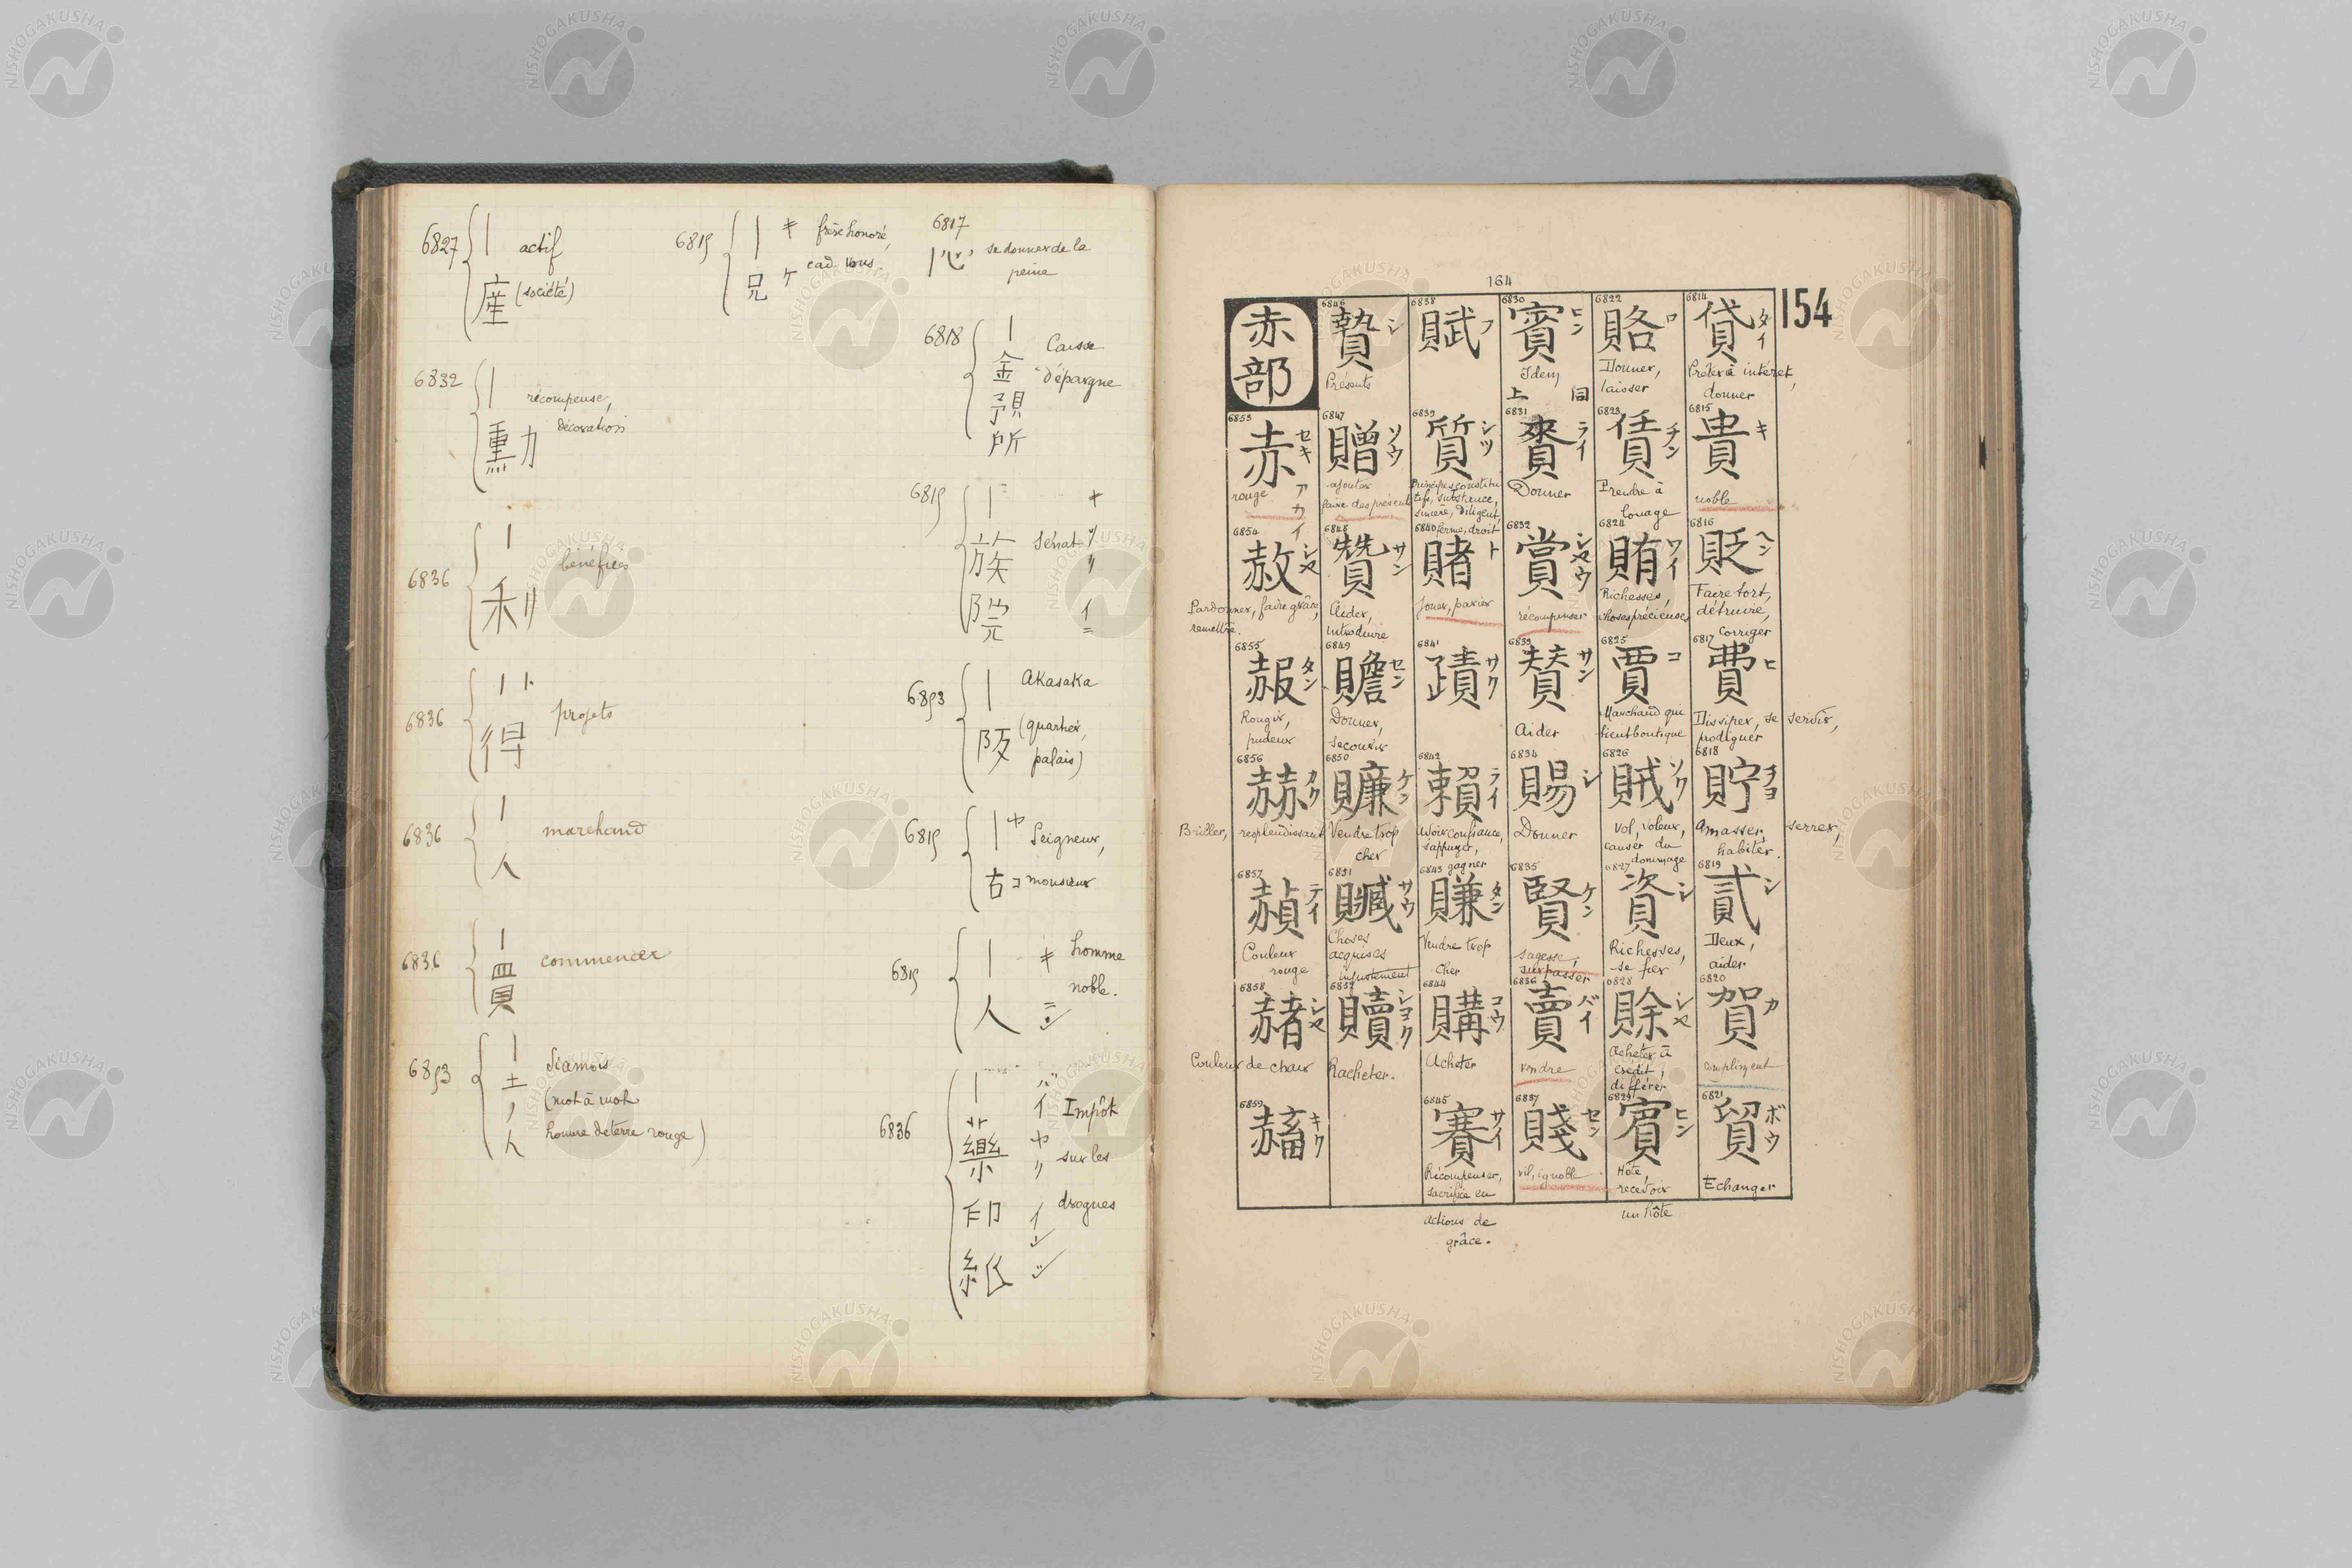 6827 | actif
産 (société)
6832 | récompense,
勳 décoration
6836 | bénéfices
利
6836 | ト projets
得
6836 | marchand
人
6836 | commencer
買
6853 | Siamois
土 (mot à mot
ノ homme de terre rouge)
人
6815 | キ frère honoré,
兄 ケ cad. vous.
6817
| 心 se donner de la
peine
6818 | Caisse
金 d'épargne
預
所
6815 | キ
族 Sénat
院 イ
6853 | Akasaka
阪 (quartier,
palais)
6815 | Seigneur,
古 コ monsieur
6815 | キ homme
人 ニ noble.
6836 | バイ Impôt
藥 ヤ sur les
印 イ drogues
紙 シ
164
154
6814
貸 タイ
Prêter à intéret,
donner
6815
貴 キ
noble
6816
貶 ヘン
Faire tort,
détruire,
corriger
6817
費 ヒ
Dissiper, se servir,
prodiguer
6818
貯 チヨ
Amasser, serrer,
habiter.
6819
貳 シ
Deux,
aider
6820
賀 カ
compliment
6821
貿 ボウ
Echanger
6822
賂 ロ
Donner,
laisser
6823
賃 チン
Prendre à
louage
6824
賄 ワイ
Richesses,
choses précieuses
6825
賈 コ
Marchand qui
tient boutique
6826
賊 ソク
Vol, voleur,
causer du
dommage
6827
資 シ
Richesses,
se fier
6828
賖 シヤ
Acheter à
crédit,
différer
6829
賔 ヒン
Hôte
recevoir
un hôte
6830
賓 ヒン
Idem
同上
6831
賚 ライ
Donner
6832
賞 シヤウ
récompenser
6833
賛 サン
Aider
6834
賜 シ
Donner
6835
賢 ケン
sagesse,
surpasser
6836
賣 バイ
vendre
6837
賤 セン
vil, ignoble
6838
賦 フ
6839
質 シツ
Principes constitu
tifs, substance,
sincère, diligent,
ferme, droit
6840
賭 ト
Jouer, parier
6841
賾 サク
6842
賴 ライ
Avoir confiance,
s'appuyer,
gagner
6843
賺 タン
Vendre trop
cher
6844
購 コウ
Acheter
6845
賽 サイ
Récompenser,
sacrifice en
actions de
grâce.
6846
贄 シ
Présents
6847
贈 ソウ
ajouter
faire des présents
6848
贊 サン
Aider,
introduire
6849
贍 セン
Donner,
secourir
6850
賺 ケン
Vendre trop
cher
6851
贓 サウ
Choses
acquises
injustement
6852
贖 シヨク
Racheter.
赤部
6853
赤 セキ
rouge アカイ
6854
赦 シヤ
Pardonner, faire grâce,
remettre.
6855
赧 タン
Rougir,
pudeur
6856
赫 カク
Briller, resplendissant
6857
赬 テイ
Couleur
rouge
6858
赭 シヤ
Couleur de chair
6859
キク